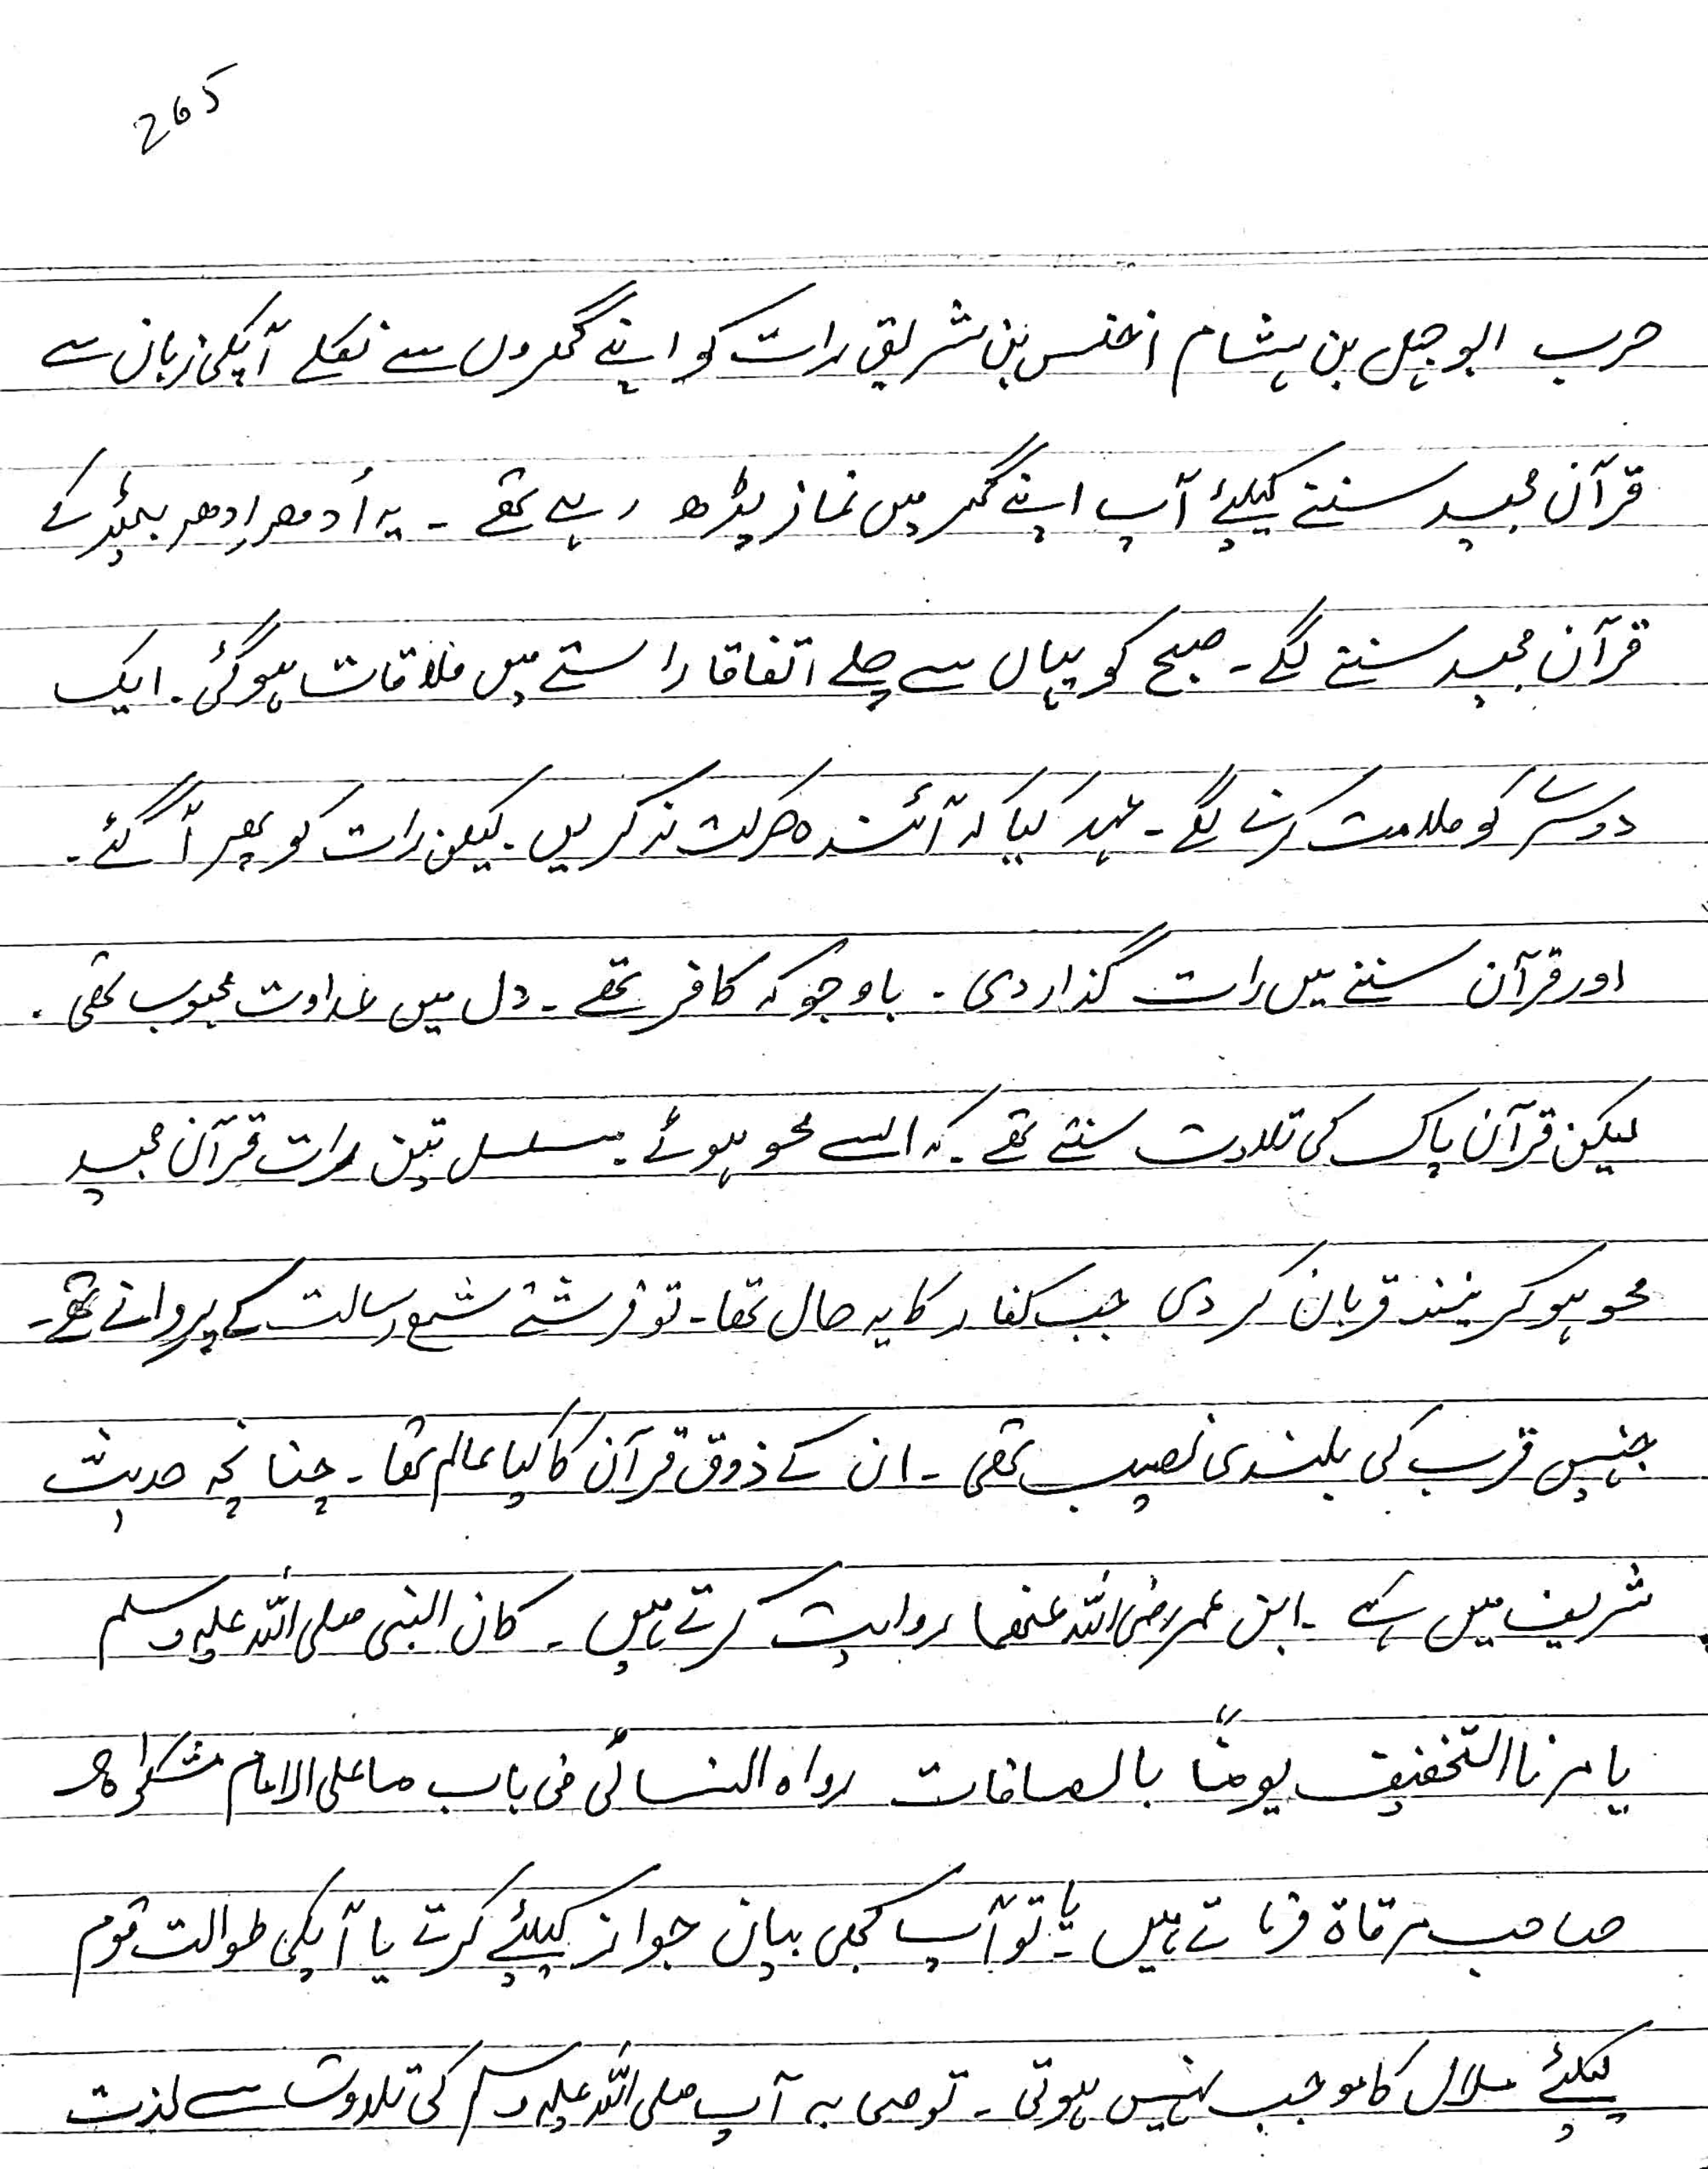 265
حرب ابوجہل بن ہشام اخنس بن شریق رات کو اپنے گھروں سے نکلے آپکی زبان سے
قرآن مجید سننے کیلئے آپ اپنے گھر میں نماز پڑھ رہے تھے ۔ یہ اُدھر اِدھر بیٹھ کے
قرآن مجید سننے لگے ۔ صبح کو یہاں سے چلے اتفاقا راستے میں ملاقات ہوگئی ۔ ایک
دوسرے کو ملامت کرنے لگے ۔ عہد کیا کہ آئندہ حرکت نہ کریں ۔ لیکن رات کو پھر آ گئے ۔
اور قرآن سننے میں رات گذار دی ۔ باوجو کہ کافر تھے ۔ دل میں عداوت محبوب تھی ۔
لیکن قرآن پاک کی تلاوت سنتے تھے ۔ کہ ایسے محو ہوئے ۔ مسلسل تین رات قرآن مجید
محو ہو کر نیند قربان کر دی جب کفار کا یہ حال تھا ۔ تو فرشتے شمع رسالت کے پروانے تھے ۔
جنہیں قرب کی بلندی نصیب تھی ۔ ان کے ذوق قرآن کا کیا عالم تھا ۔ چنانچہ حدیث
شریف میں ہے ۔ ابن عمر رضی اللہ عنھما روایت کرتے ہیں ۔ کان النبی صلی اللہ علیہ وسلم
یامرنا التخفیف یومنًا بالصافات رواہ النسائی فی باب ما علی الامام مشکواۃ
صاحب مرقاۃ فرماتے ہیں یا تو آپ کبھی بیان جواز کیلئے کرتے یا آپکی طوالت قوم
کیلئے ملال کا موجب نہیں ہوتی ۔ تو صحابہ آپ صلی اللہ علیہ وسلم کی تلاوت سے لذت